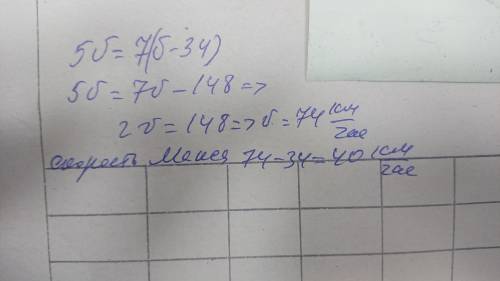 5б = 7(б-34)
5б = 7б - 148 =>
2б = 148 => б = 74 км/час
скорость Макса 74-34=40 км/час